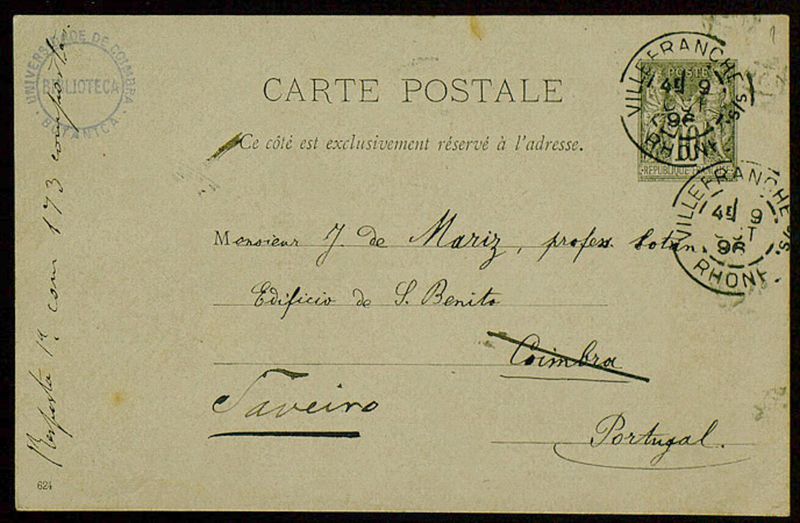 UNIVERSIDADE DE COIMBRA
BIBLIOTECA
BOTANICA
CARTE POSTALE
Ce côté est exclusivement réservé à l'adresse.
POSTE
10
REPUBLIQUE FRANÇAISE
VILLEFRANCHE S/S.
4E 9
96
RHONE
VILLEFRANCHE S/S.
4E 9
OCT
96
RHONE
Monsieur J. de Mariz, profess. botan.
Edificio de S. Benito
Coimbra
Taveiro
Portugal.
Resposta 1ª com 173 composta
624